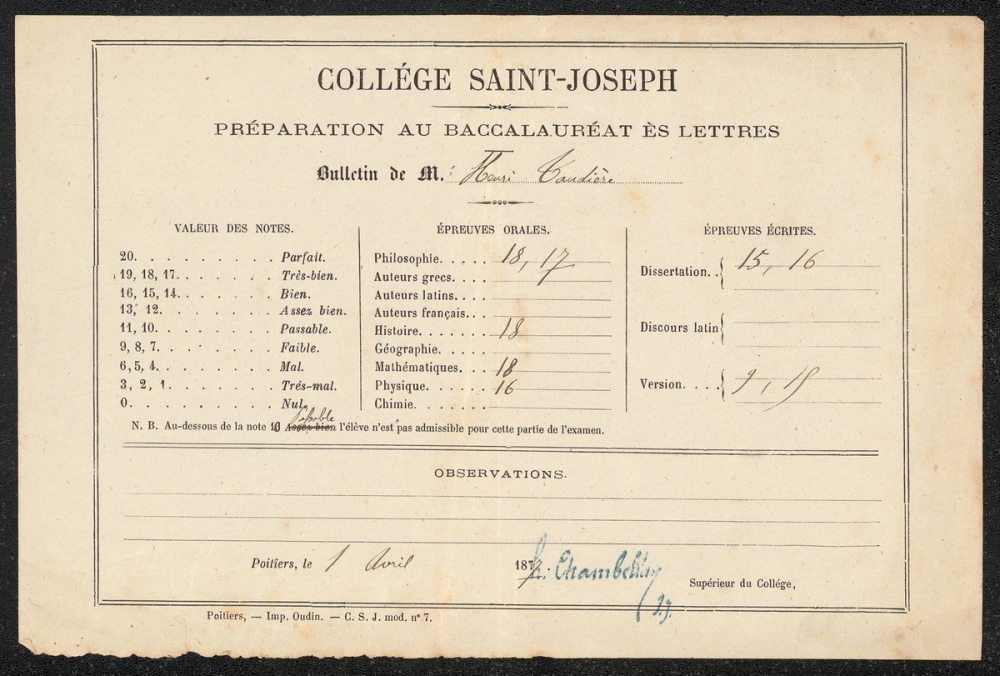 COLLÉGE SAINT-JOSEPH
PRÉPARATION AU BACCALAURÉAT ÈS LETTRES
Bulletin de M. Henri Taudière
VALEUR DES NOTES.
20. . . . . . . . . Parfait.
19, 18, 17. . . . . . . Très-bien.
16, 15, 14. . . . . . . Bien.
13, 12. . . . . . . . Assez bien.
11, 10. . . . . . . . Passable.
9, 8, 7. . . . . . . . Faible.
6, 5, 4. . . . . . . . Mal.
3, 2, 1. . . . . . . . Trés-mal.
0. . . . . . . . . Nul.
ÉPREUVES ORALES.
Philosophie. . . . . 18, 17
Auteurs grecs. . . .
Auteurs latins. . . .
Auteurs français. . .
Histoire. . . . . . 18
Géographie. . . . .
Mathématiques. . . . 18
Physique. . . . . . 16
Chimie. . . . . . .
ÉPREUVES ÉCRITES.
Dissertation. . { 15, 16
Discours latin {
Version. . . . {
Passable
N. B. Au-dessous de la note 10 Assez bien l'élève n'est pas admissible pour cette partie de l'examen.
OBSERVATIONS.
Poitiers, le 1 Avril 187 Chambellan
s.j.
Supérieur du Collége,
Poitiers, — Imp. Oudin. — C. S. J. mod. n° 7.